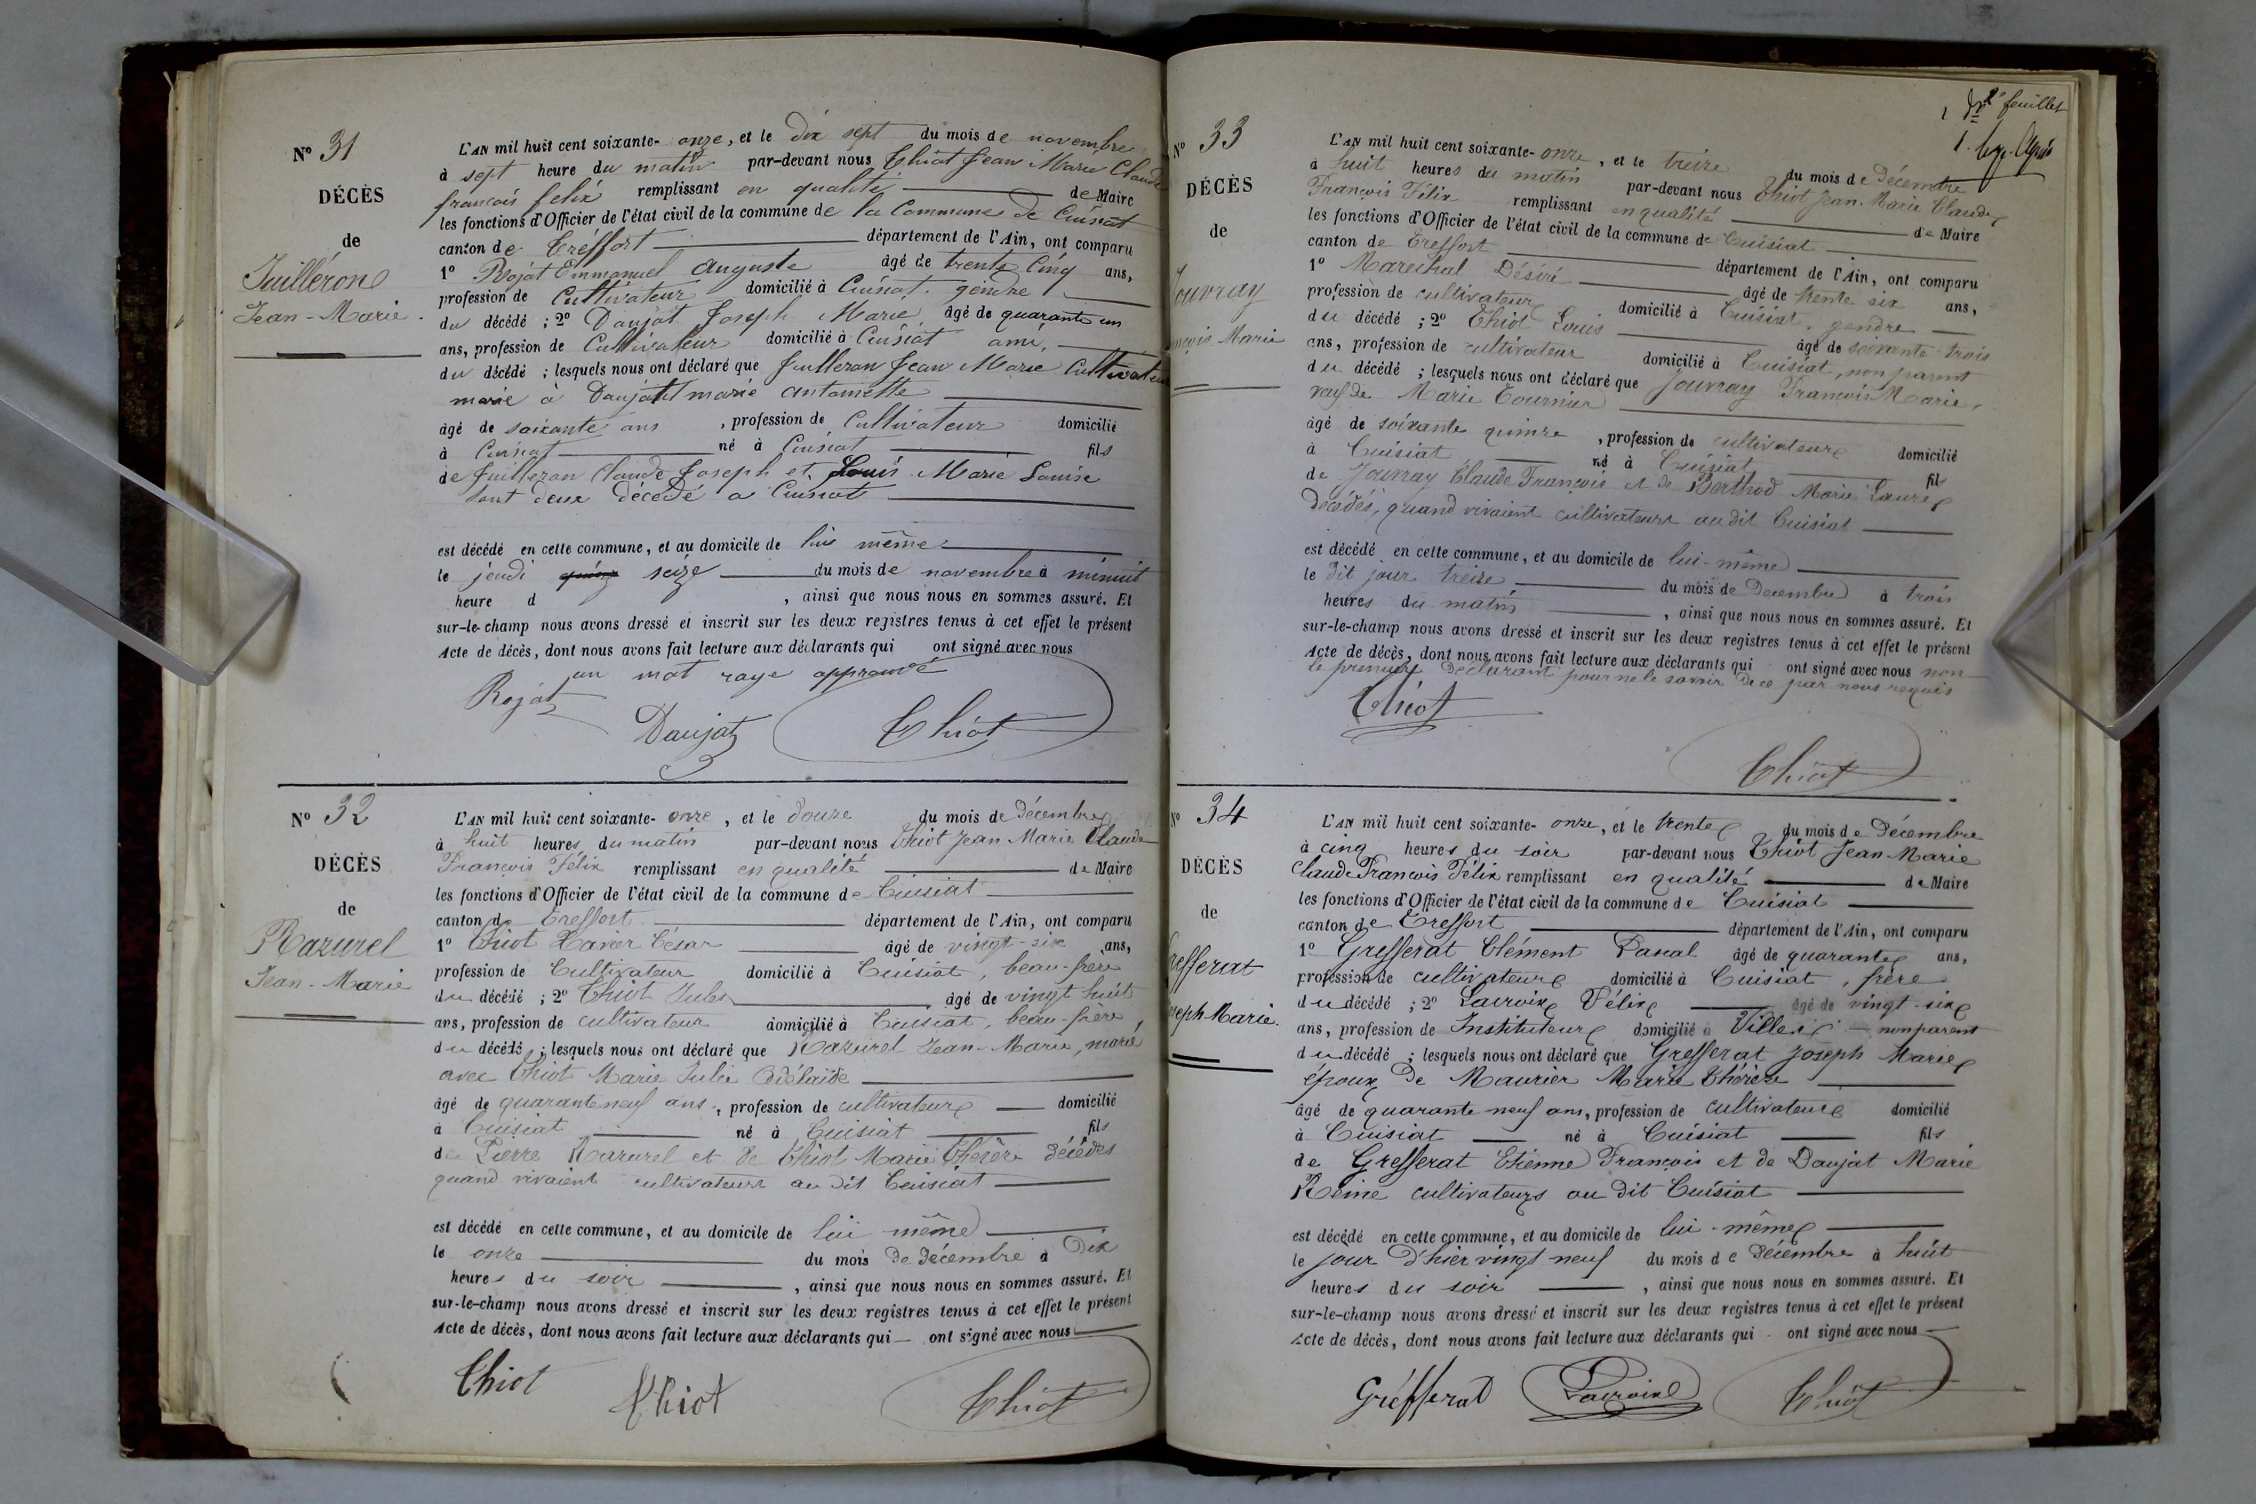 N° 31
DÉCÈS
de
Juilleron
Jean-Marie
L'AN mil huit cent soixante-onze, et le dix sept du mois de novembre
à sept heure du matin par-devant nous Thiot Jean Marie Claude
françois felix remplissant en qualité de Maire
les fonctions d'Officier de l'état civil de la commune de la Commune de Cuisiat
canton de Tréffort département de l'Ain, ont comparu
1° Rojat Emmanuel Auguste âgé de trente cinq ans,
profession de Cultivateur domicilié à Cuisiat. gendre
du décédé ; 2° Daujat Joseph Marie âgé de quarante un
ans, profession de Cultivateur domicilié à Cuisiat ami,
du décédé ; lesquels nous ont déclaré que Juilleron Jean Marie Cultivateur
marié à Daujat marie antoinette
âgé de soixante ans, profession de Cultivateur domicilié
à Cuisiat né à Cuisiat fils
de Juilleron Claude Joseph et Louis Marie Louise
tout deux décédé a Cuisiat
est décédé en cette commune, et au domicile de lui même
le jeudi seize du mois de novembre à minuit
heure d , ainsi que nous nous en sommes assuré. Et
sur-le-champ nous avons dressé et inscrit sur les deux registres tenus à cet effet le présent
Acte de décès, dont nous avons fait lecture aux déclarants qui ont signé avec nous
un mot rayé approuvé
Rojat
Daujat
Thiot
N° 32
DÉCÈS
de
Mazurel
Jean-Marie
L'AN mil huit cent soixante-onze, et le douze du mois de Décembre
à huit heures du matin par-devant nous Thiot Jean Marie Claude
François Félix remplissant en qualité de Maire
les fonctions d'Officier de l'état civil de la commune de Cuisiat
canton de Treffort département de l'Ain, ont comparu
1° Thiot Xavier César âgé de vingt-six ans,
profession de Cultivateur domicilié à Cuisiat, beau-frère
du décédé ; 2° Thiot Jules âgé de vingt huit
ans, profession de cultivateur domicilié à Cuisiat, beau-frère
du décédé ; lesquels nous ont déclaré que Mazurel Jean-Marie, marié
avec Thiot Marie Julie Adélaïde
âgé de quarante neuf ans, profession de cultivateur domicilié
à Cuisiat né à Cuisiat fils
de Pierre Mazurel et de Thiot Marie Thérèse décédés
quand vivaient cultivateurs au dit Cuisiat
est décédé en cette commune, et au domicile de lui même
le onze du mois de décembre à Dix
heures du soir , ainsi que nous nous en sommes assuré. Et
sur-le-champ nous avons dressé et inscrit sur les deux registres tenus à cet effet le présent
Acte de décès, dont nous avons fait lecture aux déclarants qui ont signé avec nous
Thiot
Thiot
Thiot
2e feuillet
N° 33
DÉCÈS
de
Jouvray
nçois Marie
L'AN mil huit cent soixante-onze, et le treize du mois de Décembre
à huit heures du matin par-devant nous Thiot Jean-Marie Claude
François Félix remplissant en qualité de Maire
les fonctions d'Officier de l'état civil de la commune de Cuisiat
canton de Treffort département de l'Ain, ont comparu
1° Maréchal Désiré âgé de trente six ans,
profession de cultivateur domicilié à Cuisiat, gendre
du décédé ; 2° Thiot Louis âgé de soixante-trois
ans, profession de cultivateur domicilié à Cuisiat, non parent
du décédé ; lesquels nous ont déclaré que Jouvray François Marie,
veuf de Marie Tournier
âgé de soixante quinze, profession de cultivateur domicilié
à Cuisiat né à Cuisiat fils
de Jouvray Claude François et de Berthod Marie Laure
Décédés, quand vivaient cultivateurs au dit Cuisiat
est décédé en cette commune, et au domicile de lui-même
le dit jour treize du mois de Décembre à trois
heures du matin , ainsi que nous nous en sommes assuré. Et
sur-le-champ nous avons dressé et inscrit sur les deux registres tenus à cet effet le présent
Acte de décès, dont nous avons fait lecture aux déclarants qui ont signé avec nous non
le premier Déclarant pour ne le savoir de ce par nous requis
Thiot
Thiot
N° 34
DÉCÈS
de
efferat
seph Marie.
L'AN mil huit cent soixante-onze, et le trente du mois de Décembre
à cinq heures du soir par-devant nous Thiot Jean-Marie
Claude François Félix remplissant en qualité de Maire
les fonctions d'Officier de l'état civil de la commune de Cuisiat
canton de Treffort département de l'Ain, ont comparu
1° Grefferat Clément Pascal âgé de quarante ans,
profession de cultivateur domicilié à Cuisiat, frère
du décédé ; 2° Lacroix Félix âgé de vingt-six
ans, profession de Instituteur domicilié à non parent
du décédé ; lesquels nous ont déclaré que Grefferat Joseph Marie
époux de Maurier Marie Thérèse
âgé de quarante neuf ans, profession de cultivateur domicilié
à Cuisiat né à Cuisiat fils
de Grefferat Etienne François et de Daujat Marie
Reine cultivateurs au dit Cuisiat
est décédé en cette commune, et au domicile de lui-même
le jour d'hier vingt neuf du mois de Décembre à huit
heures du soir , ainsi que nous nous en sommes assuré. Et
sur-le-champ nous avons dressé et inscrit sur les deux registres tenus à cet effet le présent
Acte de décès, dont nous avons fait lecture aux déclarants qui ont signé avec nous
Gréfferat
Lacroix
Thiot